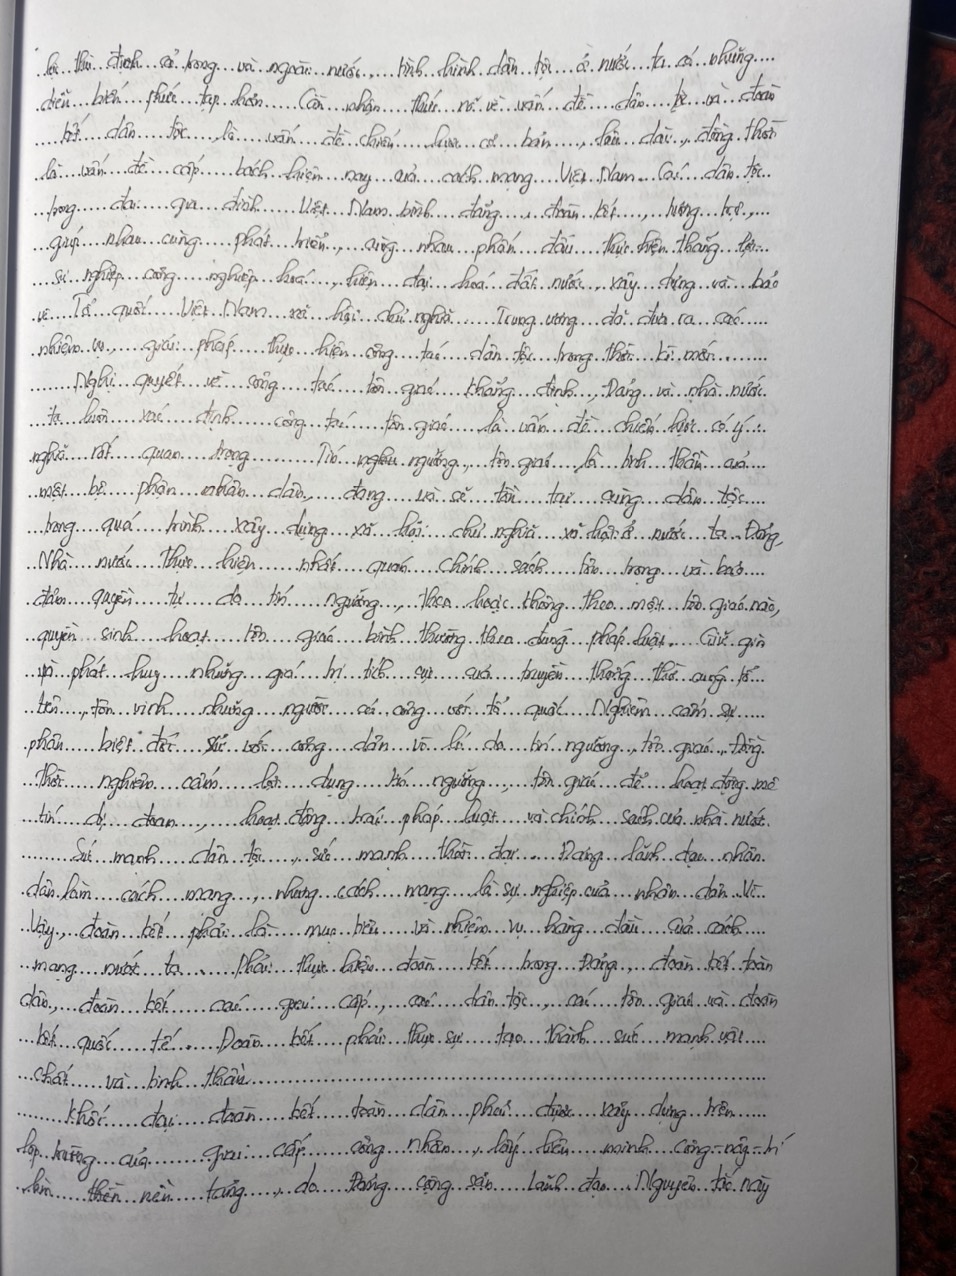 thù địch cả trong và ngoài nước, tình hình dân tộc ở nước ta có những
diễn biến phức tạp hơn. Cần nhận thức rõ về vấn đề dân tộc và đoàn
kết dân tộc, là vấn đề chiến lược cơ bản, lâu dài, đồng thời
là vấn đề cấp bách hiện nay của cách mạng Việt Nam. Các dân tộc
trong đại gia đình Việt Nam bình đẳng, đoàn kết, tương trợ,
giúp nhau cùng phát triển, cùng nhau phấn đấu thực hiện thắng lợi
sự nghiệp công nghiệp hoá, hiện đại hoá đất nước, xây dựng và bảo
vệ Tổ quốc Việt Nam xã hội chủ nghĩa. Trung ương đã đưa ra các
nhiệm vụ, giải pháp thực hiện công tác dân tộc trong thời kì mới.
Nghị quyết về công tác tôn giáo khẳng định, Đảng và nhà nước
ta luôn xác định công tác tôn giáo là vấn đề chiến lược có ý
nghĩa rất quan trọng. Tín ngưỡng, tôn giáo là tinh thần của
một bộ phận nhân dân, đang và sẽ tồn tại cùng dân tộc
trong quá trình xây dựng xã hội chủ nghĩa xã hội ở nước ta. Đảng,
Nhà nước thực hiện nhất quán chính sách tôn trọng và bảo
đảm quyền tự do tín ngưỡng, theo hoặc không theo một tôn giáo nào,
quyền sinh hoạt tôn giáo bình thường theo đúng pháp luật. Giữ gìn
và phát huy những giá trị tích cực của truyền thống thờ cúng tổ
tiên, tôn vinh những người có công với tổ quốc. Nghiêm cấm sự
phân biệt đối xử với công dân vì lí do tín ngưỡng, tôn giáo. Đồng
thời nghiêm cấm lợi dụng tín ngưỡng, tôn giáo để hoạt động mê
tín dị đoan, hoạt động trái pháp luật và chính sách của nhà nước.
Sức mạnh dân tộc, sức mạnh thời đại. Đảng lãnh đạo nhân
dân làm cách mạng, nhưng cách mạng là sự nghiệp của nhân dân. Vì
vậy, đoàn kết phải là mục tiêu và nhiệm vụ hàng đầu của cách
mạng nước ta. Phải thực hiện đoàn kết trong Đảng, đoàn kết toàn
dân, đoàn kết các giai cấp, các dân tộc, các tôn giáo và đoàn
kết quốc tế. Đoàn kết phải thực sự tạo thành sức mạnh vật
chất và tinh thần.
Khối đại đoàn kết toàn dân phải được xây dựng trên
lập trường của giai cấp công nhân, lấy liên minh công - nông - trí
làm nền tảng, do Đảng cộng sản lãnh đạo. Nguyên tắc này